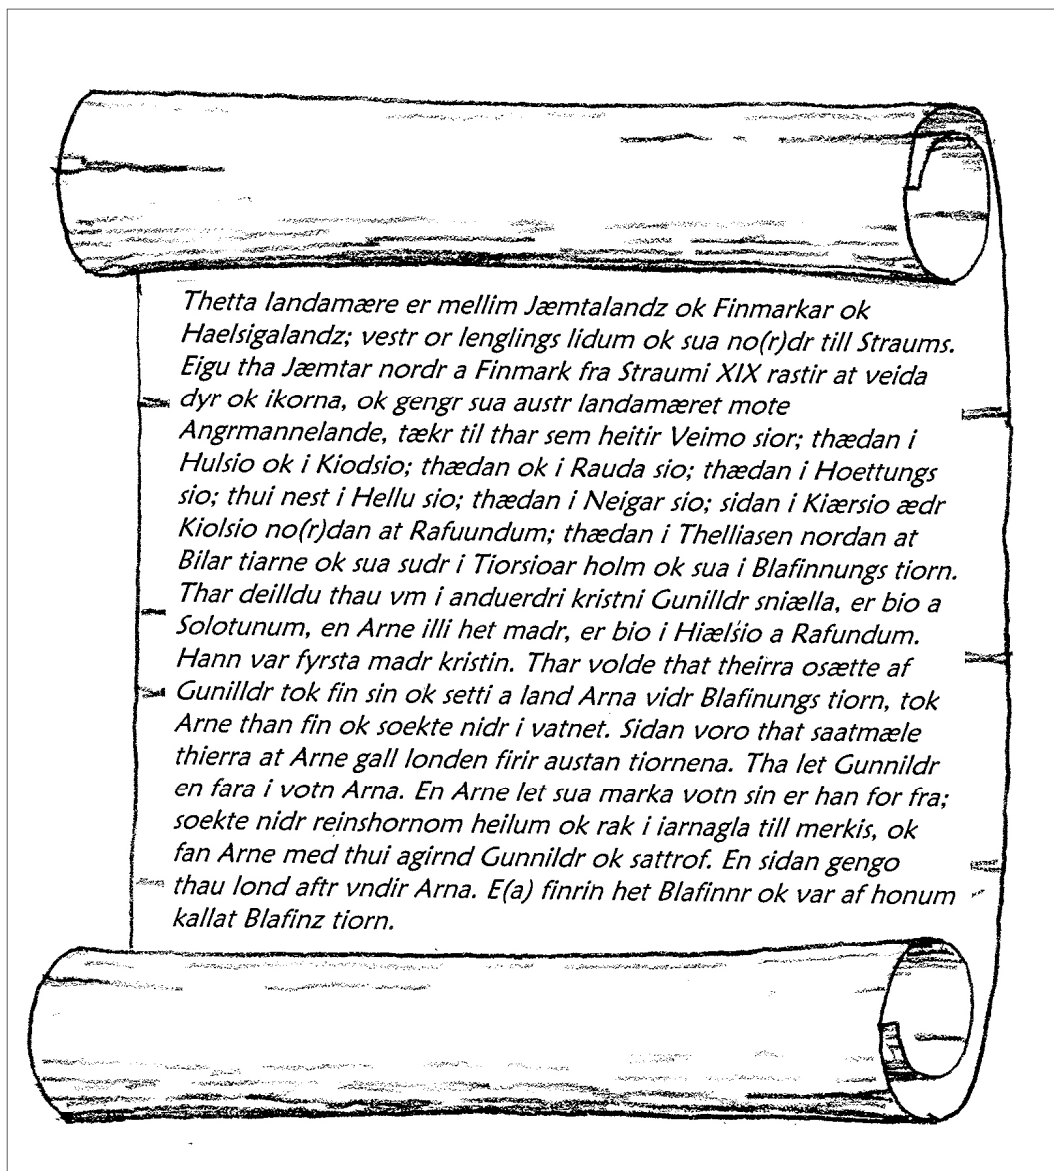 Thetta landamære er mellim Jæmtalandz ok Finmarkar ok
Haelsigalandz; vestr or lenglings lidum ok sua no(r)dr till Straums.
Eigu tha Jæmtar nordr a Finmark fra Straumi XIX rastir at veida
dyr ok ikorna, ok gengr sua austr landamæret mote
Angrmannelande, tækr til thar sem heitir Veimo sior; thædan i
Hulsio ok i Kiodsio; thædan ok i Rauda sio; thædan i Hoettungs
sio; thui nest i Hellu sio; thædan i Neigar sio; sidan i Kiærsio ædr
Kiolsio no(r)dan at Rafuundum; thædan i Thelliasen nordan at
Bilar tiarne ok sua sudr i Tiorsioar holm ok sua i Blafinnungs tiorn.
Thar deilldu thau vm i anduerdri kristni Gunilldr sniælla, er bio a
Solotunum, en Arne illi het madr, er bio i Hiælsio a Rafundum.
Hann var fyrsta madr kristin. Thar volde that theirra osætte af
Gunilldr tok fin sin ok setti a land Arna vidr Blafinungs tiorn, tok
Arne than fin ok soekte nidr i vatnet. Sidan voro that saatmæle
thierra at Arne gall londen firir austan tiornena. Tha let Gunnildr
en fara i votn Arna. En Arne let sua marka votn sin er han for fra;
soekte nidr reinshornom heilum ok rak i iarnagla till merkis, ok
fan Arne med thui agirnd Gunnildr ok sattrof. En sidan gengo
thau lond aftr vndir Arna. E(a) finrin het Blafinnr ok var af honum
kallat Blafinz tiorn.